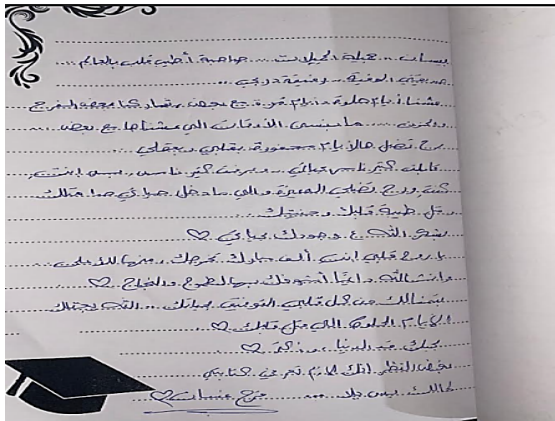 بيسان .. جميلة الجميلات .... صاحبة أطيب قلب بالعالم ...
صديقتي الوفية .. رفيقة دربي ..
عشنا أيام حلوة وأيام مرة مع بعض وصار كتا بعض الفرح
والحزن .... ما بنسى الأوقات الي عشناها مع بعض ...
رح تضل هالأيام محفورة بقلبي وبعقلي ...
قابلت كتير ناس بحياتي .. وعرفت كتير ناس .. بس إنتي
كنتي ورح تضلي المميزة والي ما دخل حياتي حدا متلك
وبتل طيبة قلبك وحنيتك
بشكر الله ع وجودك بحياتي ♡
يا روح قلبي إنتي ألف مبارك تخرجك ومنها للأعلى
وإن شاء الله دائماً أشوفك بهالطموح والنجاح ♡
بتمنالك من كل قلبي التوفيق بحياتك ... الله يجعلك
الأيام الحلوة الي متل قلبك ♡
بحبك قد الدنيا وأكتر ♡
بغض النظر إنك لازم تعرفي كتابتي